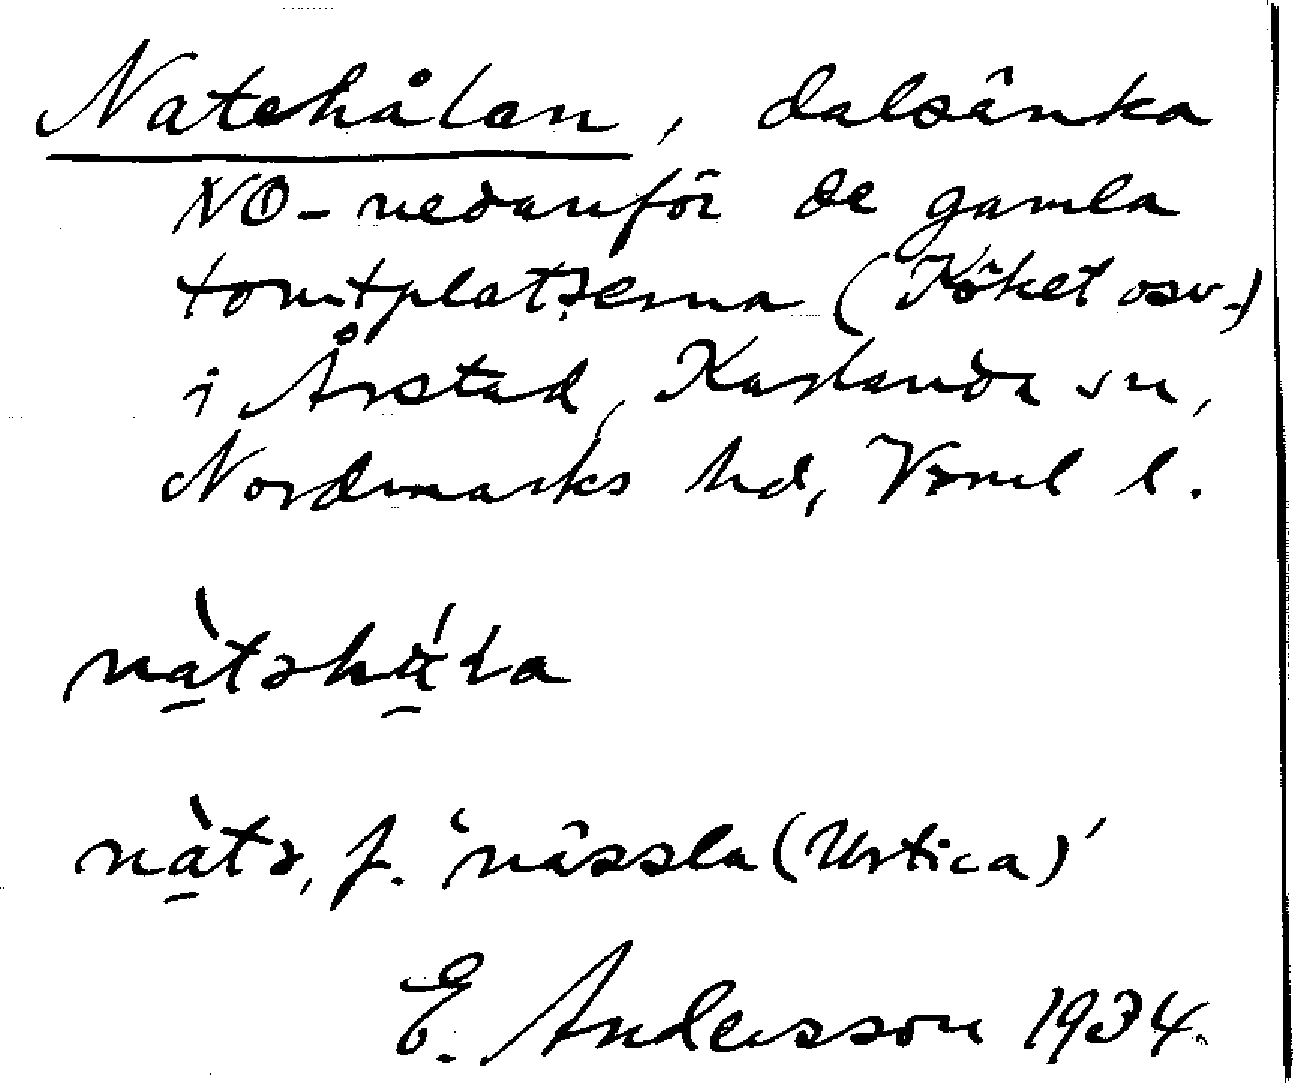 Natehålan, dalsänka
NO-nedanför de gamla
tomtplatserna (Köket osv.)
i Årstad, Karlanda sn,
Nordmarks hd, Vrml l.
nàtəhá̤la
nàtə, f. 'nässla (Urtica)'
E. Andersson 1934.